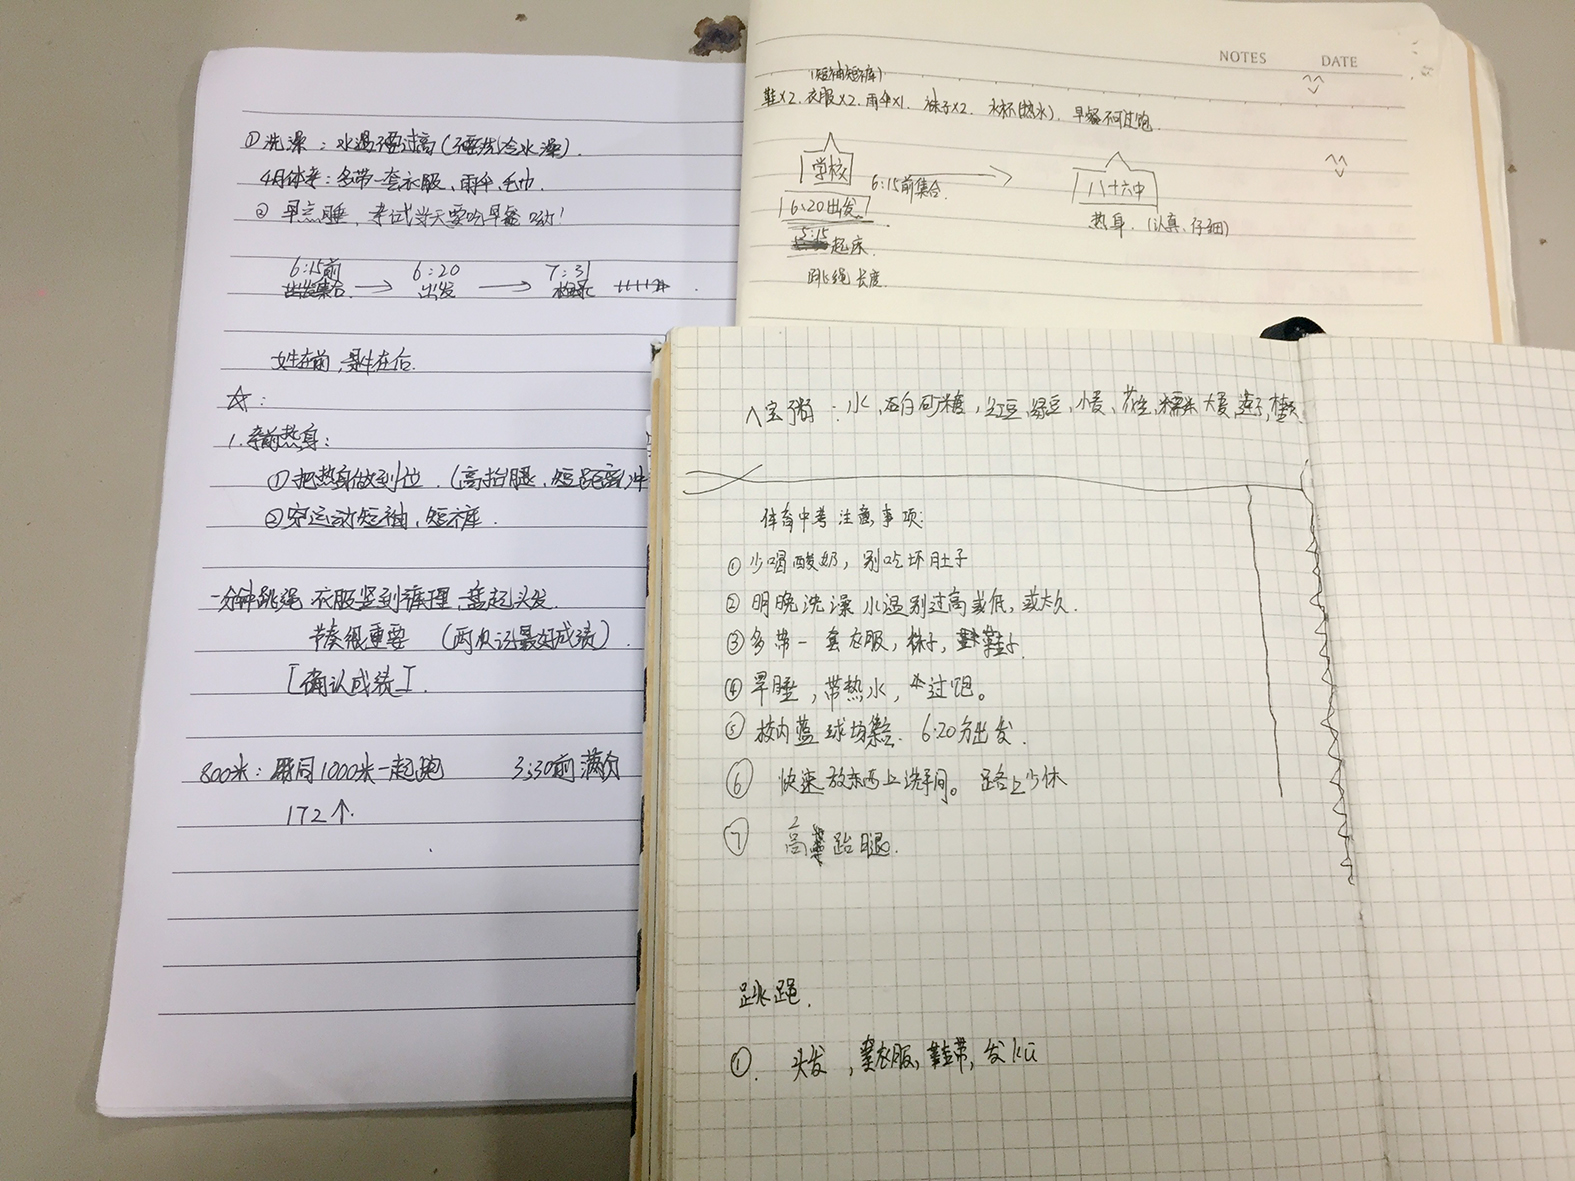 ①洗澡：水温不要过高(不要洗冷水澡).
4月体考：多带一套衣服、雨伞、毛巾.
②早点睡，考试当天要吃早餐
6:15前 6:20 7:31
出发集合 → 出发 →
女生在前，男生在后.
☆：
1.考前热身：
①把热身做到位.(高抬腿、短距离冲
②穿运动短袖、短裤.
一分钟跳绳 衣服 到裤 盘起头发.
节奏很重要 (两次记最好成绩).
[确认成绩].
800米： 同1000米一起跑 3:30前满分
172个.
NOTES DATE
(短袖短裤)
鞋×2.衣服×2.雨伞×1. 袜子×2. 水杯(热水). 早餐不可过饱.
学校 6:15前集合. → 八十六中
6:20出发 热身.(认真、仔细)
5:15起床.
跳绳长度.
八宝粥：水、白砂糖，红豆、绿豆、小麦、花生、糯米 大麦、莲子、
体育中考注意事项：
①少喝酸奶，别吃坏肚子
②明晚洗澡水温别过高或低，或太久.
③多带一套衣服，袜子，鞋子.
④早睡，带热水， 过饱。
⑤校内蓝球场集合. 6:20分出发.
⑥ 快速放东西上洗手间。路上少休
⑦ 高 跆腿.
跳绳.
①. 头发， 衣服，鞋带，发ku